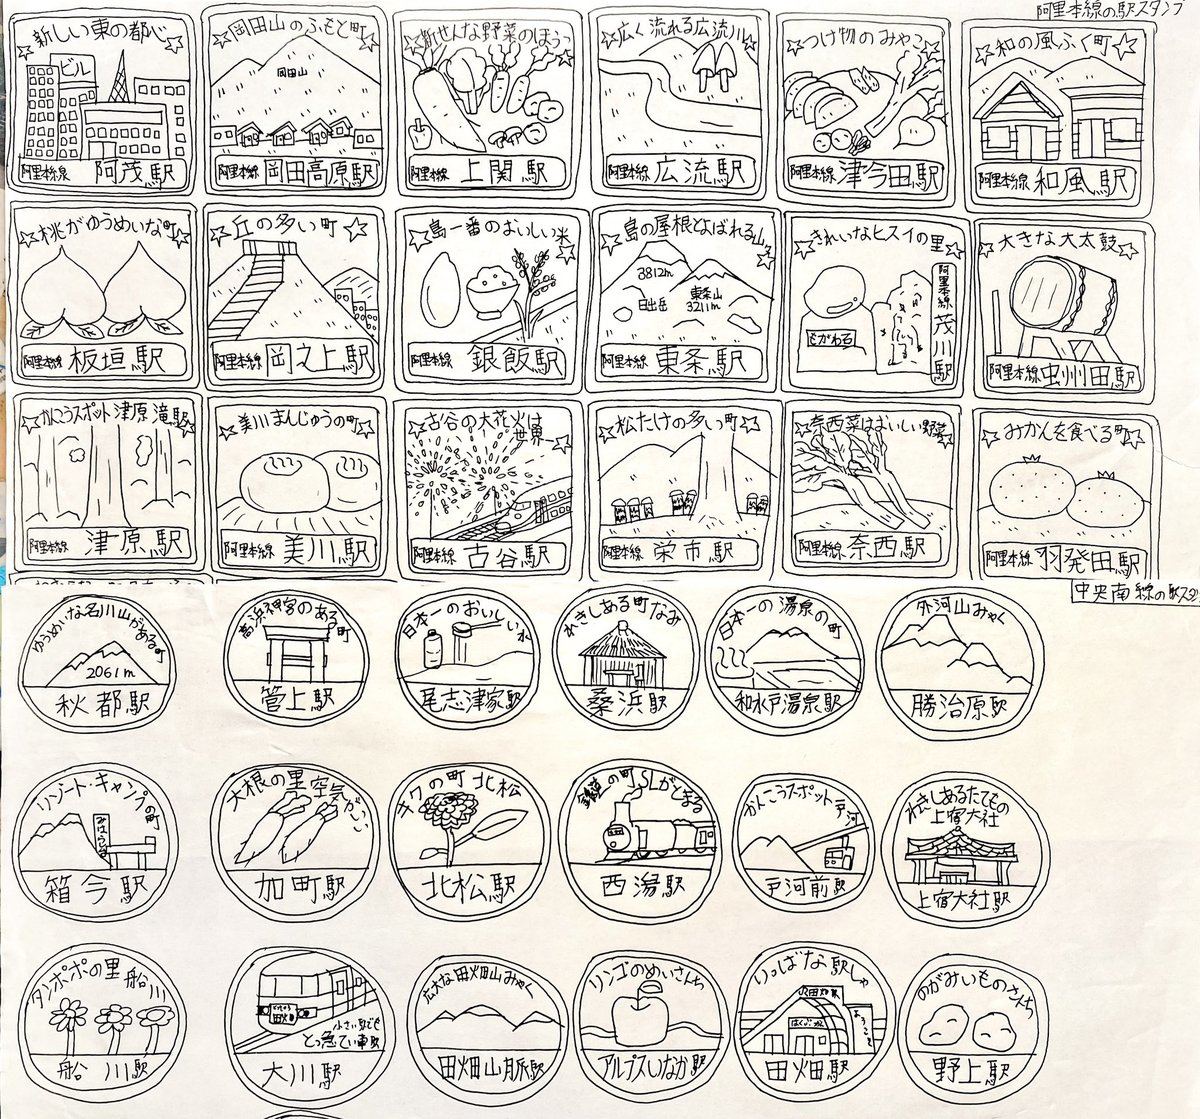 阿里本線の駅スタンプ
新しい東の都心
ビル
阿里本線 阿茂駅
岡田山のふもと町
岡田山
阿里本線 岡田高原駅
新せんな野菜のほうこ
阿里本線 上関駅
広く流れる広流川
阿里本線 広流駅
つけ物のみやこ
阿里本線 津今田駅
和の風ふく町
阿里本線 和風駅
桃がゆうめいな町
阿里本線 板垣駅
丘の多い町
阿里本線 岡之上駅
島一番のおいしい米
阿里本線 銀飯駅
島の屋根とよばれる山
3812m
日出岳
東条山
3211m
阿里本線 東条駅
きれいなヒスイの里
もがわる
阿里本線 茂川駅
大きな大太鼓
阿里本線 虫州田駅
かんこうスポット津原滝駅
阿里本線 津原駅
美川まんじゅうの町
阿里本線 美川駅
古谷の大花火は
世界一
阿里本線 古谷駅
松たけの多い町
阿里本線 栄市駅
奈西菜はおいしい野菜
阿里本線 奈西駅
みかんを食べる町
阿里本線 羽発田駅
中央南線の駅スタ
ゆうめいな名川山がある町
2061m
秋都駅
高浜神宮のある町
管上駅
日本一のおいしい水
尾志津家駅
れきしある町なみ
桑浜駅
日本一の湯泉の町
和水戸湯泉駅
外河山みゃく
勝治原駅
リゾート・キャンプの町
箱今駅
大根の里空気がいい
加町駅
キクの町 北松
北松駅
鉄道の町SLがとまる
西湯駅
かんこうスポット戸河
戸河前駅
れきしあるたてもの
上宿大社
上宿大社駅
タンポポの里 船川
船川駅
田畑
小さい駅でも
とっ急てい車駅
大川駅
広大な田畑山みゃく
田畑山脈駅
リンゴのめいさんち
アルプスいなか駅
りっぱな駅しゃ
JR田畑駅
はくぶつかん
ようこそ
田畑駅
のがみいものさんち
野上駅